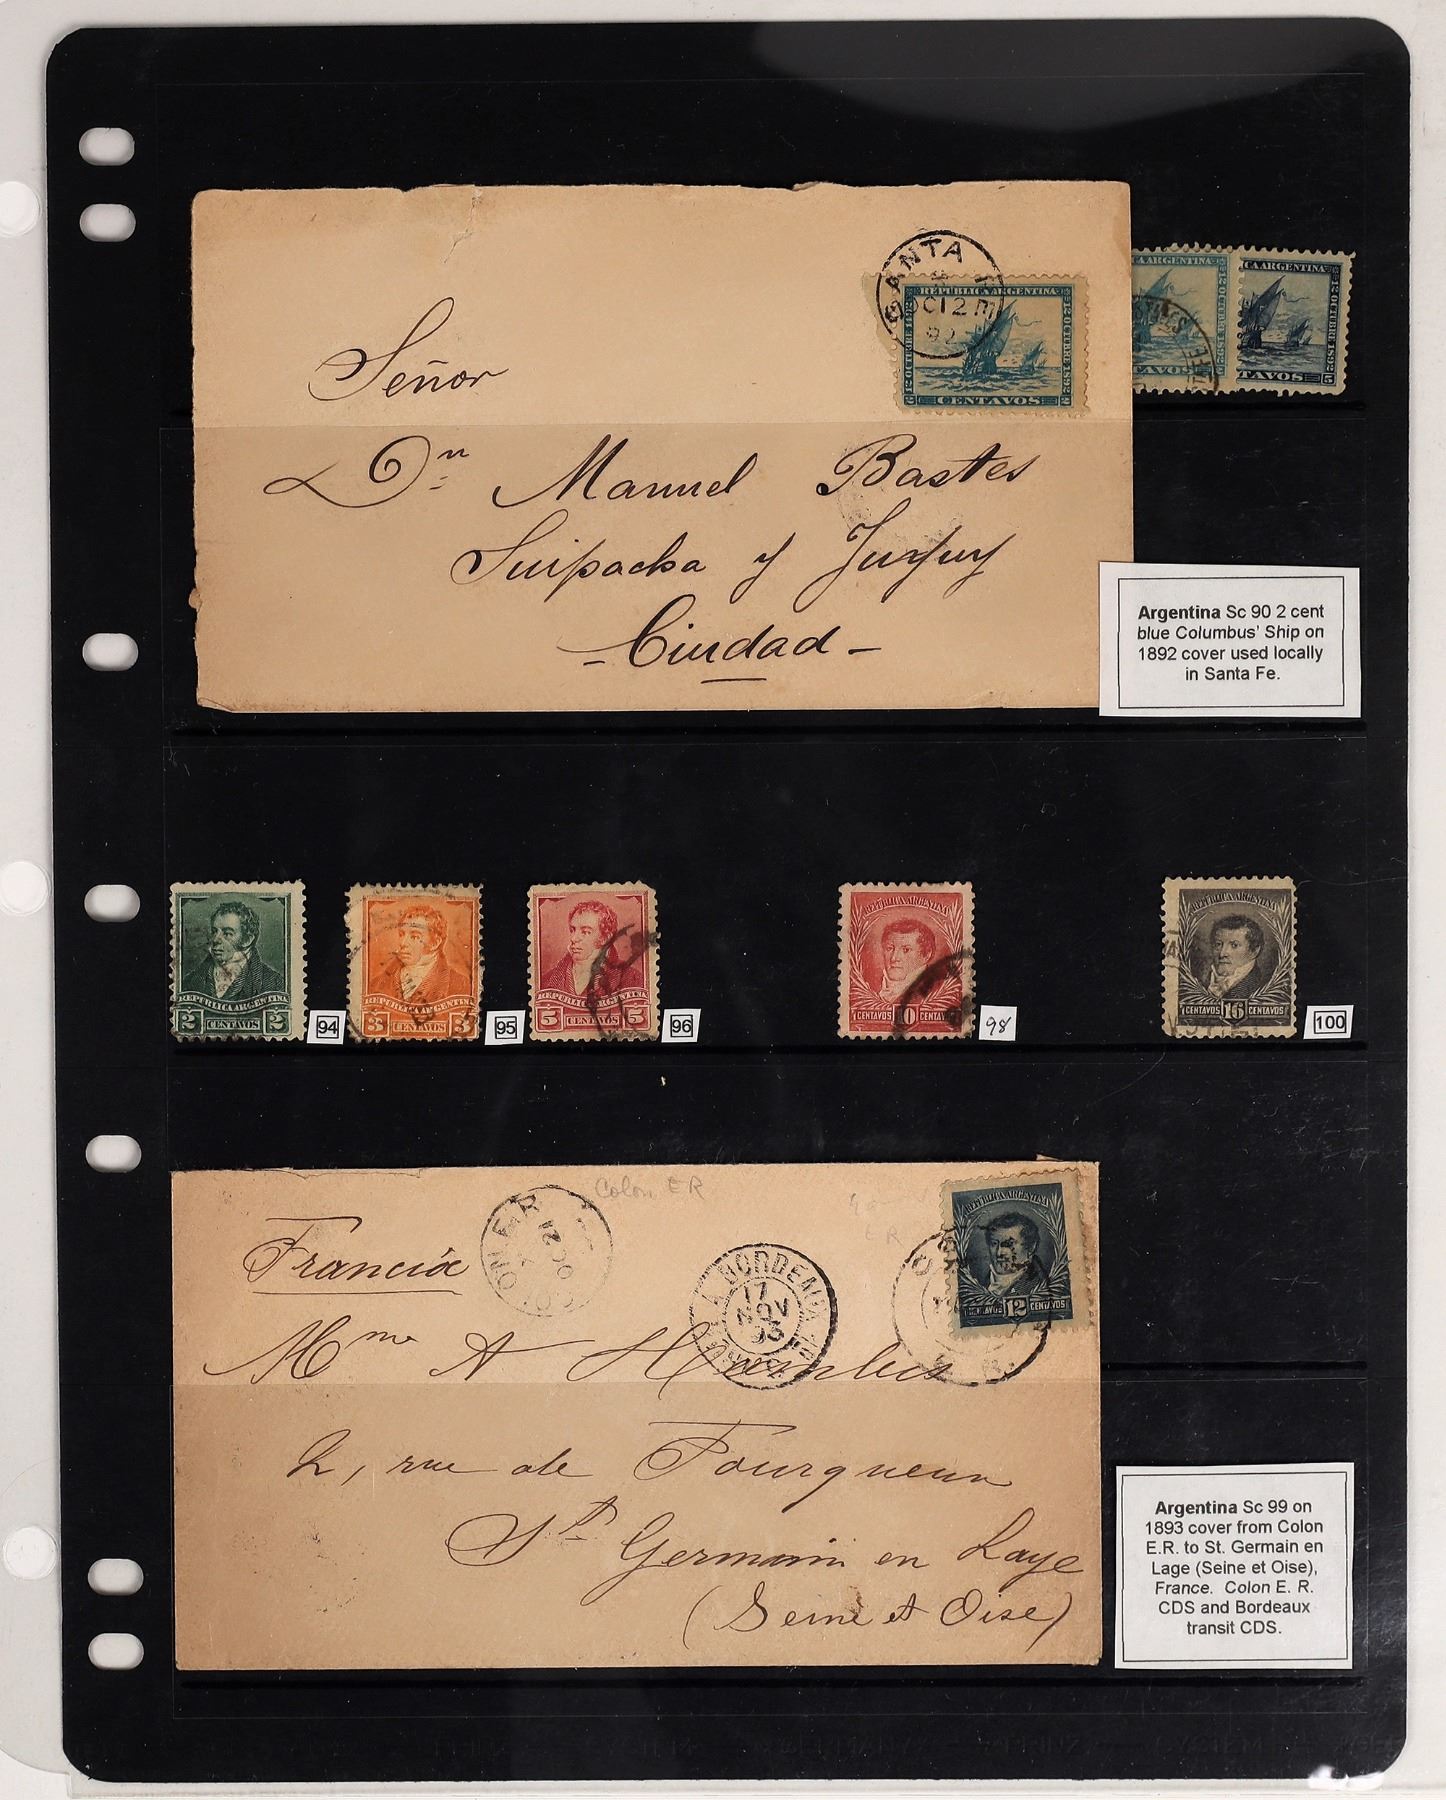 SANTA FE
OC 12
92
REPUBLICA ARGENTINA
12 OCTUBRE 1492
12 OCTUBRE 1892
2 CENTAVOS 2
CA ARGENTINA
12 OCTUBRE 1892
TAVOS
CA ARGENTINA
12 OCTUBRE 1892
TAVOS 5
Señor
Dn Manuel Bastes
Suipacha y Jujuy
- Ciudad -
Argentina Sc 90 2 cent
blue Columbus' Ship on
1892 cover used locally
in Santa Fe.
REPUBLICA ARGENTINA
2 CENTAVOS 2
94
REPUBLICA ARGENTINA
3 CENTAVOS 3
95
REPUBLICA ARGENTINA
5 CENTAVOS 5
96
REPUBLICA ARGENTINA
CENTAVOS 10 CENTAVOS
98
REPUBLICA ARGENTINA
CENTAVOS 16 CENTAVOS
100
Colon ER
COLON E.R
21 OC
BORDEAUX
17
NOV
93
REPUBLICA ARGENTINA
CENTAVOS 12 CENTAVOS
Francia
Mme A Humbles
2, rue de Fourqueux
St Germain en Laye
(Seine et Oise)
Argentina Sc 99 on
1893 cover from Colon
E.R. to St. Germain en
Lage (Seine et Oise),
France. Colon E. R.
CDS and Bordeaux
transit CDS.